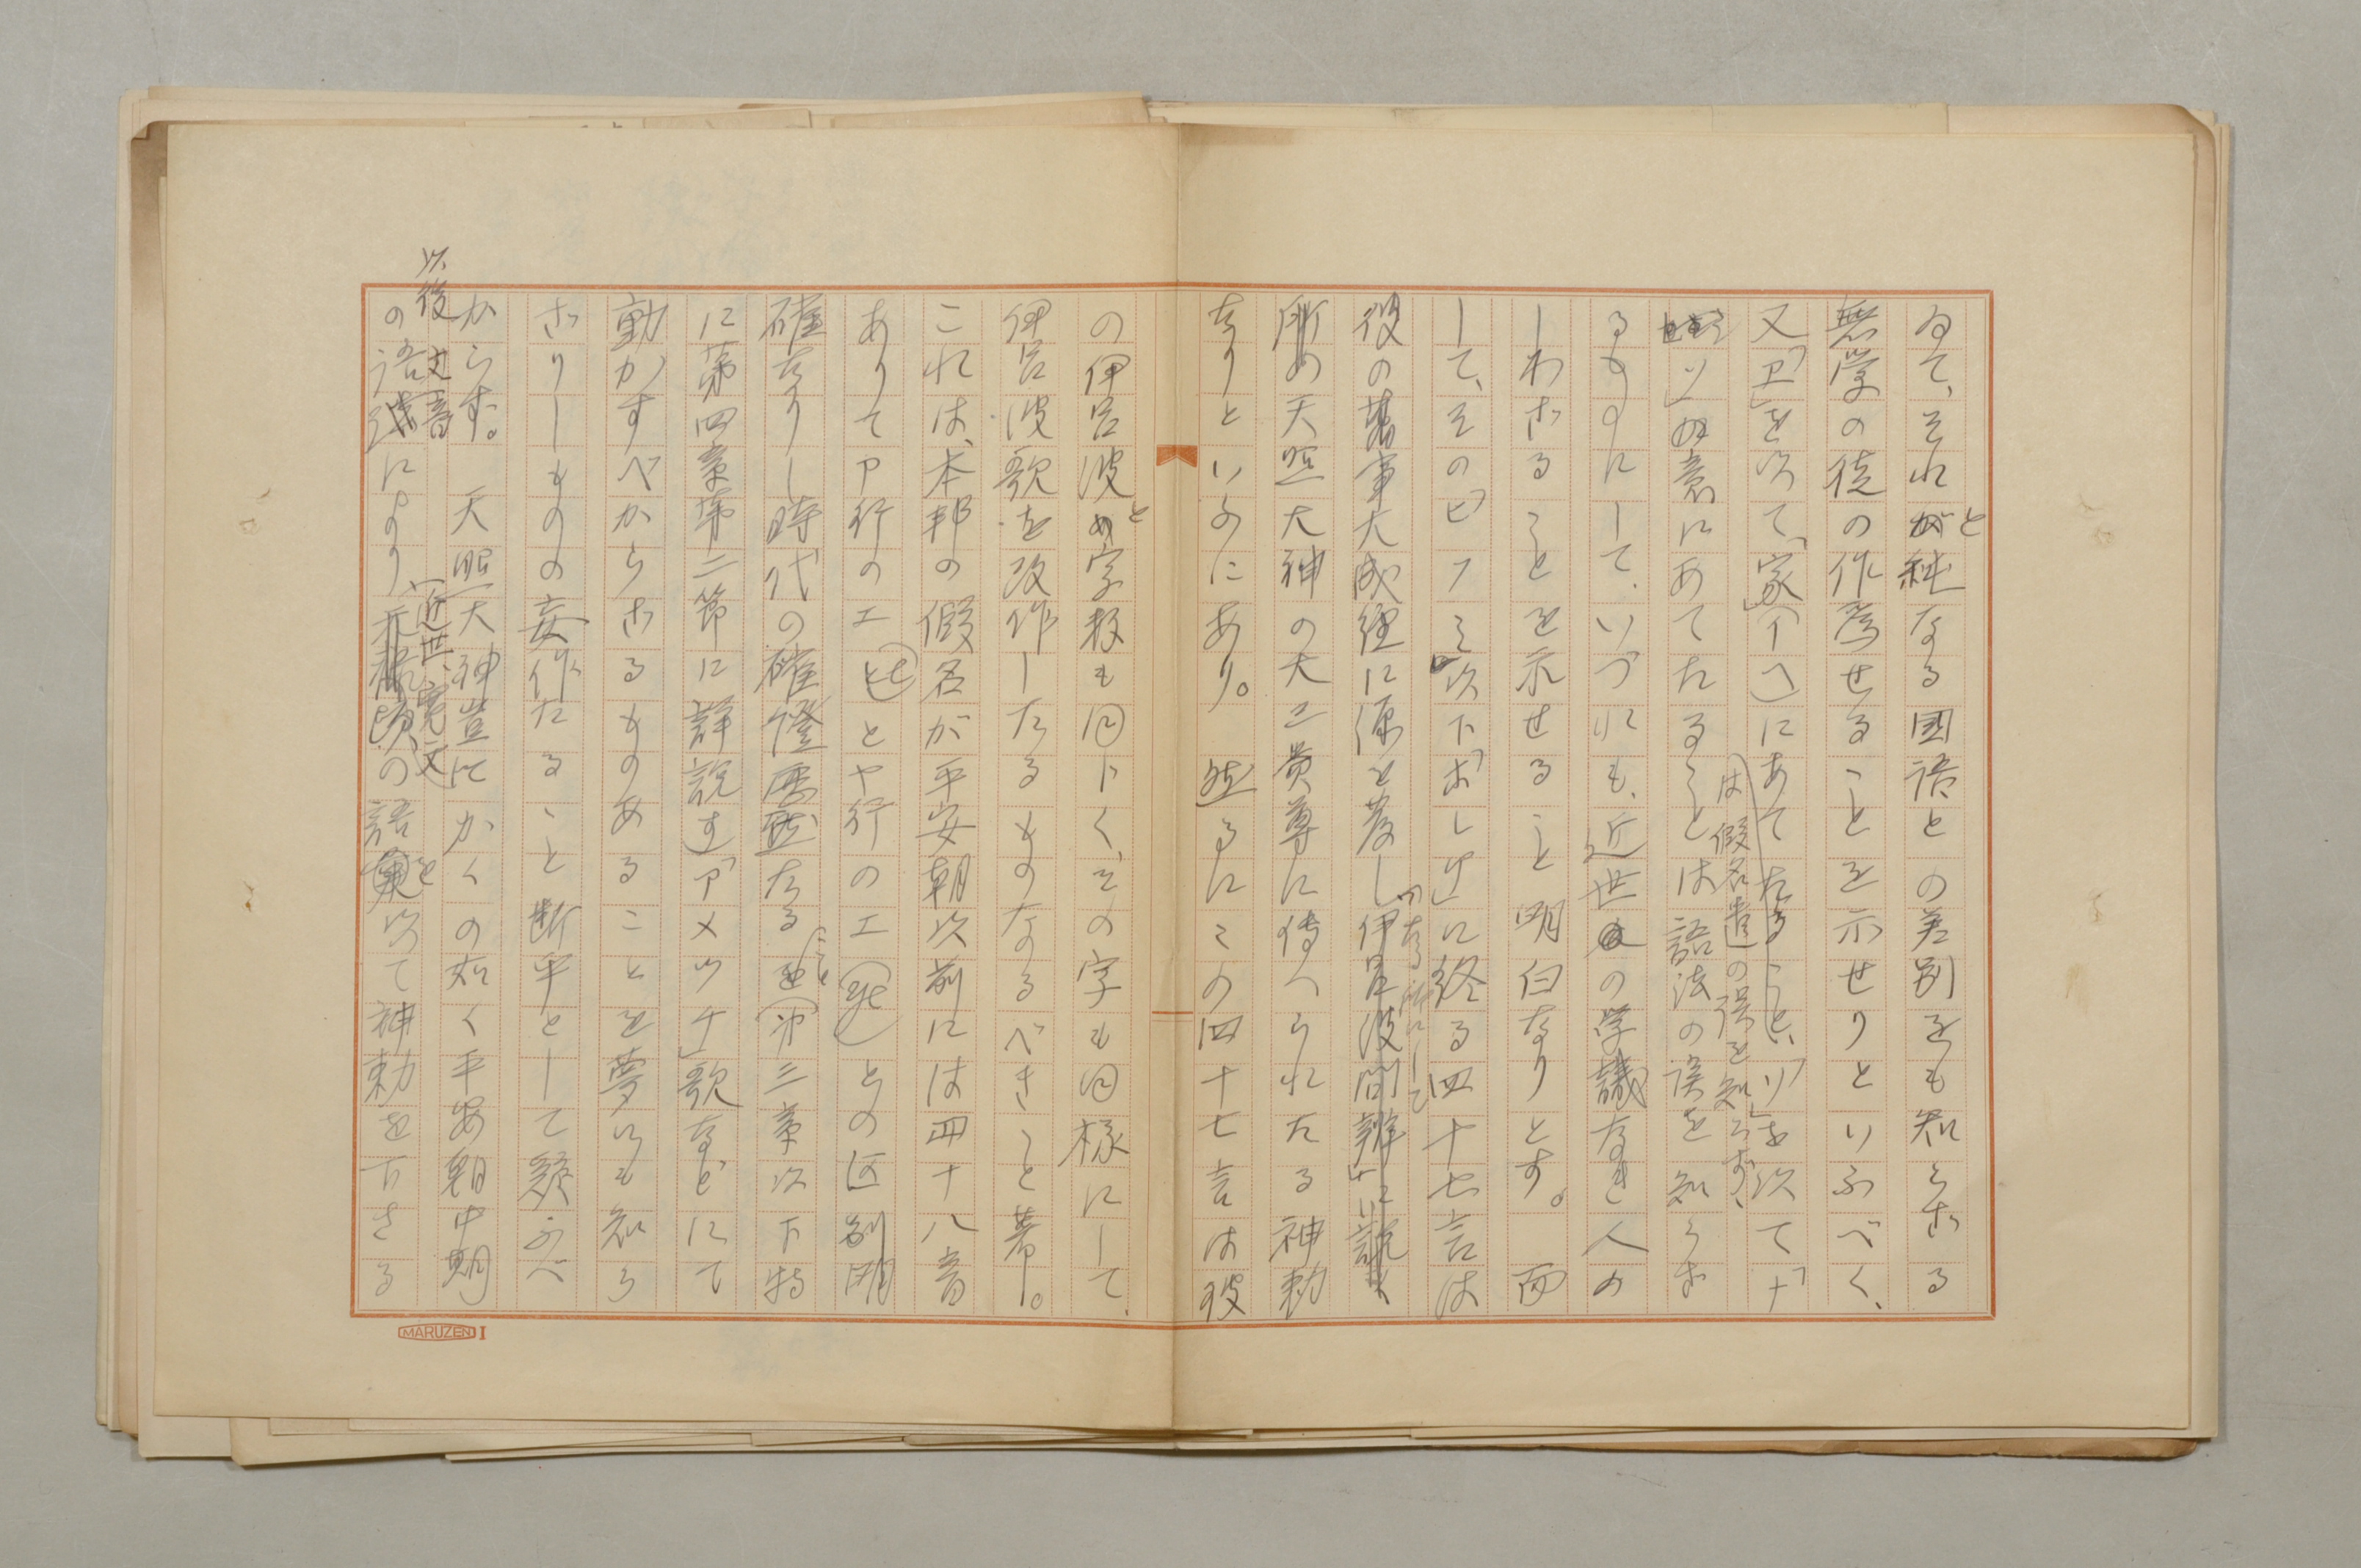 ゐて、それと純なる國語との差別をも知らざる
無学の徒の作為せることを示せりといふべく、
又「ヱ」を以て、「家」(イヘ)にあてたること、「ソ」を以て「ナ
ソ」の意にあてたることは語法の誤を知らざ
は假名遣の誤を知らず、
るものにして、いづれも、近世の学識なき人の
しわざることを示せること明白なりとす。 而
して、その「ヒフミ以下「ホレケ」に終る四十七言は
彼の旧事大成経に源を発し
なる所にして
所の天照大神の大己貴尊に傳へられたる神勅
なりといふにあり。 然るにこの四十七言は彼
の伊呂波と字数も同じく、その字も同様にして、
伊呂波歌を改作したるものなるべきこと著し。
これは、本邦の假名が平安朝以前には四十八音
ありてア行のエ(e)とヤ行のエ(ye)との区別明
確なりし時代の確證歴然なるに(第三章以下特
に第四章第二節に詳説す)「アメツチ」歌などにて
動かすべからざるものあることを夢にも知ら
ざりしものの妄作たること断乎として疑ふべ
からず。 天照大神豈にかくの如く平安朝中期
以後
の語によりて、
(近世、寛文)
頃の語を以て神勅を下さる
MARUZEN I